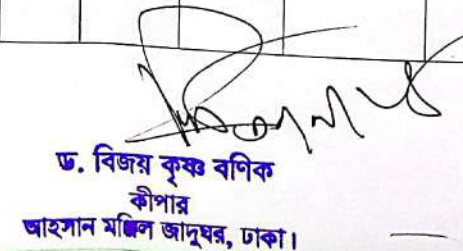 ড. বিজয় কৃষ্ণ বণিক
কীপার
আহসান মঞ্জিল জাদুঘর, ঢাকা।